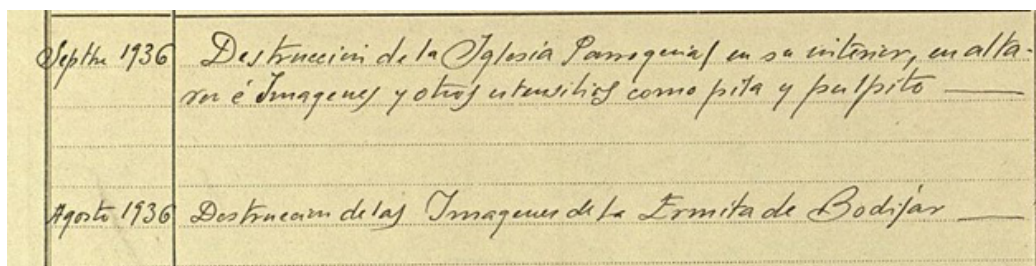 Septbre 1936 Destruccion de la Iglesia Parroquial en su interior, en alta-
res é Imagenes y otros utensilios como pila y pulpito
Agosto 1936 Destruccion de las Imagenes de la Ermita de Bodijar